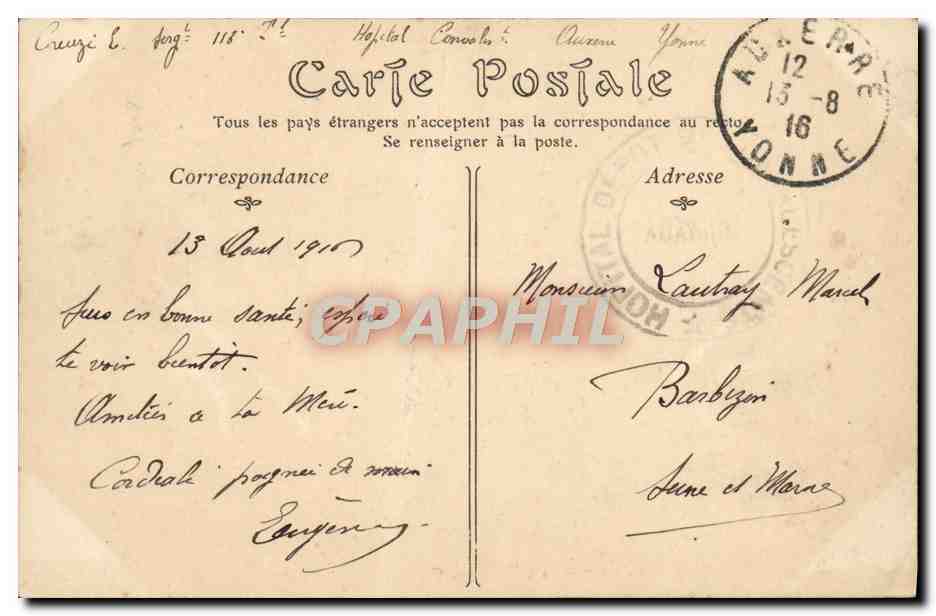 Creuzé E. Sergt 118e Hopital Auxerre Yonne
Carte Postale
Tous les pays étrangers n'acceptent pas la correspondance au recto
Se renseigner à la poste.
AUXERRE
12
13 -8
16
YONNE
HOPITAL DEPOT
Correspondance
Adresse
13 Aout 1916
Suis en bonne santé, espère
te voir bientot.
Amitiés a ta Mère.
Cordiale poignée de main
Eugène
Monsieur Lautray Marcel
Barbizon
Seine et Marne
CPAPHIL